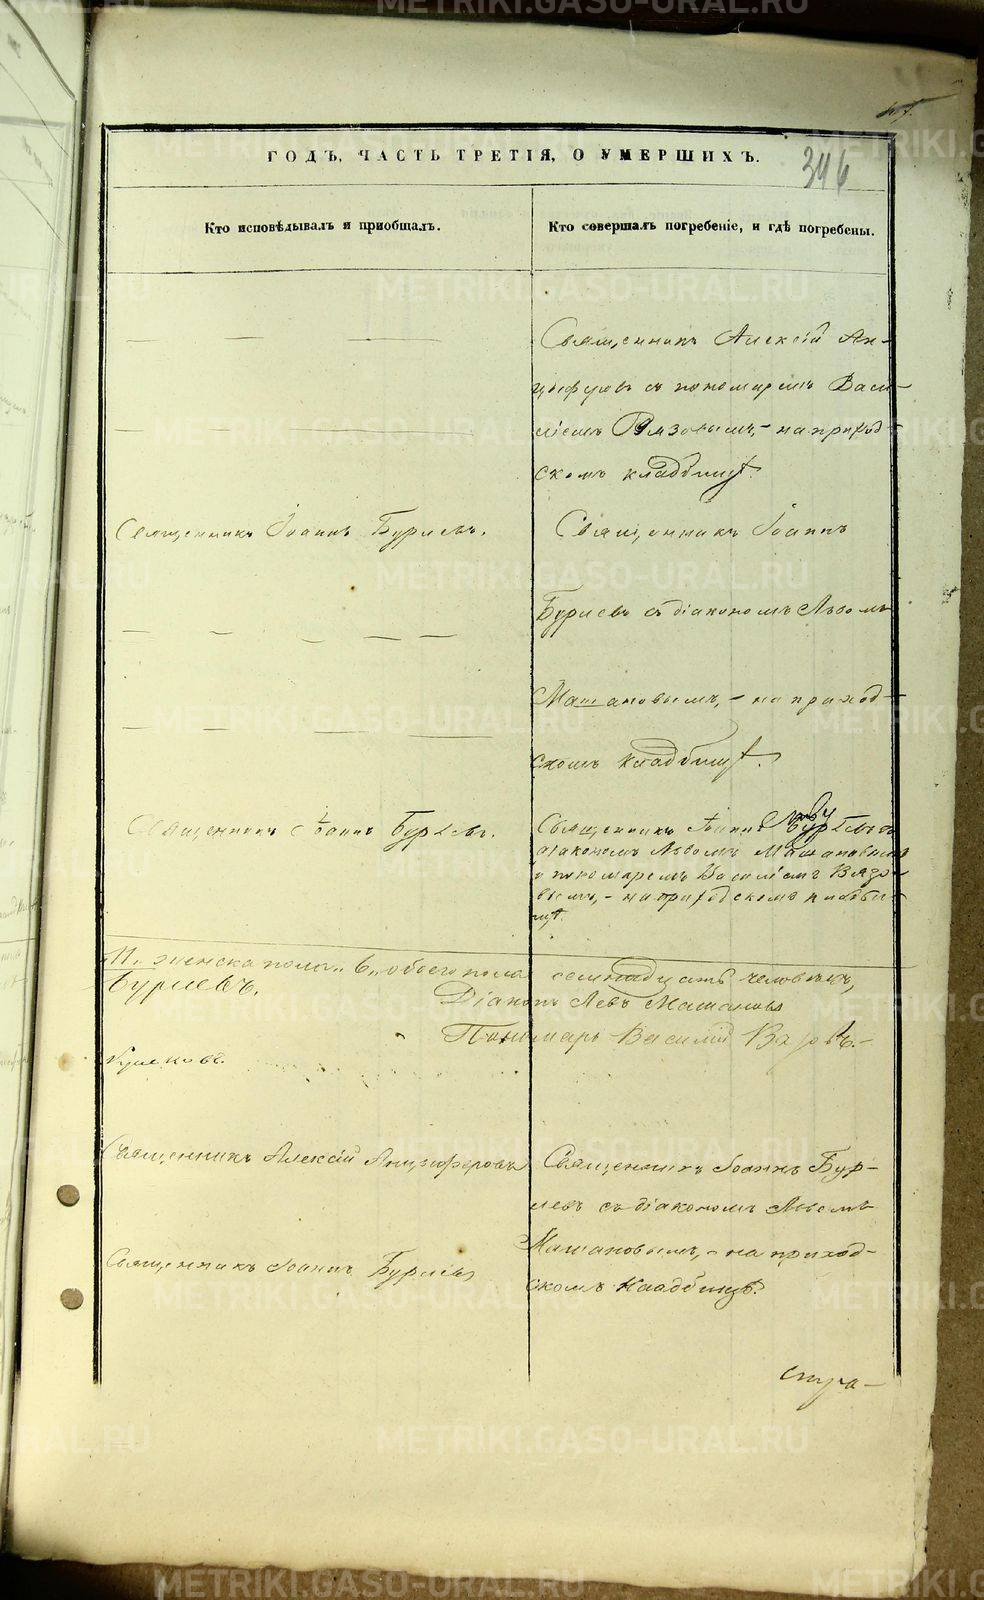 ГОДЪ, ЧАСТЬ ТРЕТІЯ, О УМЕРШИХЪ.
346
Кто исповѣдывалъ и пріобщалъ.
Кто совершалъ погребеніе, и гдѣ погребены.
Священникъ Алексій Ан-
цыферовъ съ пономаремъ Васи-
ліемъ Вязовымъ, - на приход-
скомъ кладбищѣ.
Священникъ Іоаннъ Бурлевъ.
Священникъ Іоаннъ
Бурлевъ съ діакономъ Львомъ
Машановымъ, - на приход-
скомъ кладбищѣ.
Священникъ Іоаннъ Бурлевъ.
Священникъ Іоаннъ Бурлевъ съ
діакономъ Львомъ Машановымъ
и пономаремъ Василіемъ Вязо-
вымъ, - на приходскомъ кладби-
щѣ.
11. женска пола 6. обоего пола семнадцать человѣкъ,
Бурлевъ.
Діаконъ Левъ Машановъ
Пономарь Василій
Священникъ Алексій Анцыферовъ
Священникъ Іоаннъ Бур-
левъ съ діакономъ Львомъ
Машановымъ, - на приход-
Священникъ Іоаннъ Бурлевъ
скомъ кладбищѣ.
METRIKI.GASO-URAL.RU